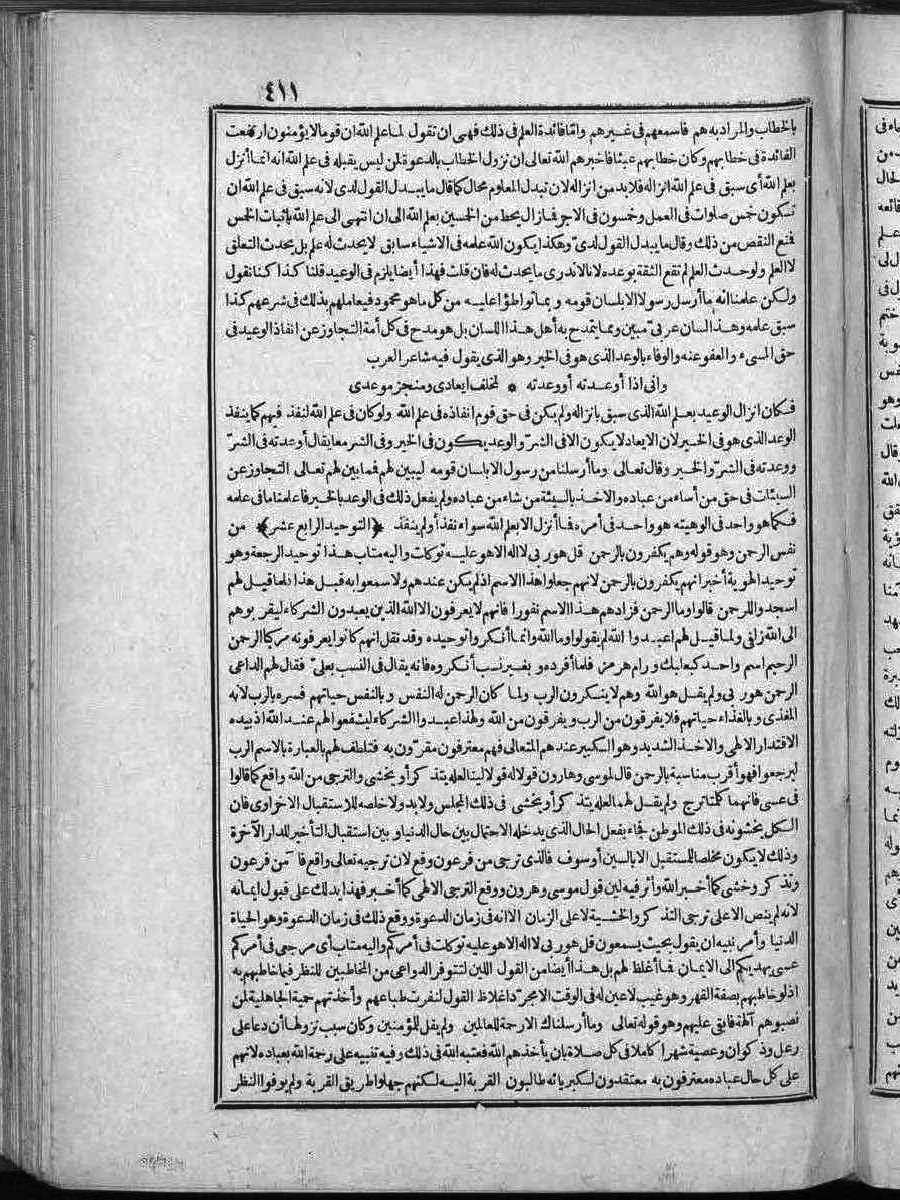 ٤١١
بالخطاب والمراد به هم فاسمعهم فى غيرهم وامّا فائدة العلم فى ذلك فهى ان تقول لما علم الله ان قوما لا يؤمنون ارتفعت
الفائدة فى خطابهم وكان خطابهم عبثا فاخبرهم الله تعالى ان نزول الخطاب بالدعوة لمن ليس يقبله فى علم الله انه انما أنزل
بعلم الله أى سبق فى علم الله انزاله فلا بد من انزاله لان تبدل المعلوم محال كما قال ما يبدل القول لدى لانه سبق فى علم الله ان
تكون خمس صلوات فى العمل وخمسون فى الاجر فما زال يحط من الخمسين بعلم الله الى ان انتهى الى علم الله باثبات الخمس
فمنع النقص من ذلك وقال ما يبدل القول لدىّ وهكذا يكون الله علمه فى الاشياء سابق لا يحدث له علم بل يحدث التعلق
لا العلم ولو حدث العلم لم تقع الثقة بوعده لانا لاندرى ما يحدث له فان قلت فهذا أيضا يلزم فى الوعيد قلنا كذا كنا نقول
ولكن علمنا انه ما أرسل رسولا الا بلسان قومه وبما تواطؤا عليه من كل ما هو محمود فيعاملهم بذلك فى شرعهم كذا
سبق علمه وهذا لسان عربىّ مبين ومما يتمدح به أهل هذا اللسان بل هو مدح فى كل أمة التجاوز عن انفاذ الوعيد فى
حق المسىء والعفو عنه والوفاء بالوعد الذى هو فى الخير وهو الذى يقول فيه شاعر العرب
وانى اذا أوعدته أو وعدته * لمخلف ايعادى ومنجز موعدى
فكان انزال الوعيد بعلم الله الذى سبق بانزاله ولم يكن فى حق قوم انفاذه فى علم الله ولو كان فى علم الله لنفذ فيهم كما ينفذ
الوعد الذى هو فى الخير لان الايعاد لا يكون الا فى الشرّ والوعد يكون فى الخير وفى الشر معا يقال أوعدته فى الشرّ
ووعدته فى الشرّ والخير وقال تعالى وما أرسلنا من رسول الا بلسان قومه ليبين لهم فمما بين لهم تعالى التجاوز عن
السيئات فى حق من أساء من عباده والاخذ بالسيئة من شاء من عباده ولم يفعل ذلك فى الوعد بالخير فاعلمنا ما فى علمه
فكما هو واحد فى الوهيته هو واحد فى أمره فما أنزل الا بعلم الله سواء نفذ أو لم ينفذ ﴿التوحيد الرابع عشر﴾ من
نفس الرحمن وهو قوله وهم يكفرون بالرحمن قل هو ربى لا اله الا هو عليه توكلت واليه متاب هذا توحيد الرجعة وهو
توحيد الهوية أخبر انهم يكفرون بالرحمن لانهم جهلوا هذا الاسم اذ لم يكن عندهم ولا سمعوا به قبل هذا فلما قيل لهم
اسجدوا للرحمن قالوا وما الرحمن فزادهم هذا الاسم نفورا فانهم لا يعرفون الا الله الذين يعبدون الشركاء ليقربوهم
الى الله زلفى ولما قيل لهم اعبدوا الله لم يقولوا وما الله وانما أنكروا توحيده وقد نقل انهم كانوا يعرفونه مركبا الرحمن
الرحيم اسم واحد كبعلبك ورام هرمز فلما أفرده و بغير نسب أنكروه فانه يقال فى النسب بعلىّ فقال لهم الداعى
الرحمن هو ربى ولم يقل هو الله وهم لا ينكرون الرب ولما كان الرحمن له النفس وبالنفس حياتهم فسره بالرب لانه
المغذى وبالغذاء حياتهم فلا يفرقون من الرب ويفرقون من الله ولهذا عبدوا الشركاء ليشفعوا لهم عند الله اذ بيده
الاقتدار الالهى والاخذ الشديد وهو الكبير عندهم المتعالى فهم معترفون مقرّون به فتلطف لهم بالعبارة بالاسم الرب
ليرجعوا فهو أقرب مناسبة بالرحمن قال لموسى وهارون قولا له قولا لينا لعله يتذكر أو يخشى والترجى من الله واقع كما قالوا
فى عسى فانهما كلمتا ترج ولم يقل لهما لعله يتذكر أو يخشى فى ذلك المجلس ولا بد ولا خلصه للاستقبال الاخراوى فان
الكل يخشونه فى ذلك الموطن فجاء بفعل الحال الذى يدخله الاحتمال بين حال الدنيا وبين استقبال التأخير للدار الآخرة
وذلك لا يكون مخلصا للمستقبل الا بالسين أو سوف فالذى ترجى من فرعون وقع لان ترجيه تعالى واقع فآمن فرعون
وتذكر وخشى كما أخبر الله وأثر فيه لين قول موسى وهرون ووقع الترجى الالهى كما أخبر فهذا يدلك على قبول ايمانه
لانه لم ينص الا على ترجى التذكر والخشية لا على الزمان الا انه فى زمان الدعوة ووقع ذلك فى زمان الدعوة وهو الحياة
الدنيا وأمر نبيه ان يقول بحيث يسمعون قل هو ربى لا اله الا هو عليه توكلت فى أمركم واليه متاب أى مرجعى فى أمركم
عسى يهديكم الى الايمان فما أغلظ لهم بل هذا أيضا من القول اللين لتتوفر الدواعى من المخاطبين للنظر فيما خاطبهم به
اذ لو خاطبهم بصفة القهر وهو غيب لا عين له فى الوقت الا مجرّد اغلاظ القول لنفرت طباعهم وأخذتهم حمية الجاهلية لمن
نصبوهم آلهة فابقى عليهم وهو قوله تعالى وما أرسلناك الا رحمة للعالمين ولم يقل للمؤمنين وكان سبب نزولها أن دعا على
رعل وذكوان وعصية شهرا كاملا فى كل صلاة بان يأخذهم الله فعتبه الله فى ذلك وفيه تنبيه على رحمة الله بعباده لانهم
على كل حال عباده معترفون به معتقدون لكبريائه طالبون القربة اليه لكنهم جهلوا طريق القربة ولم يوفوا النظر